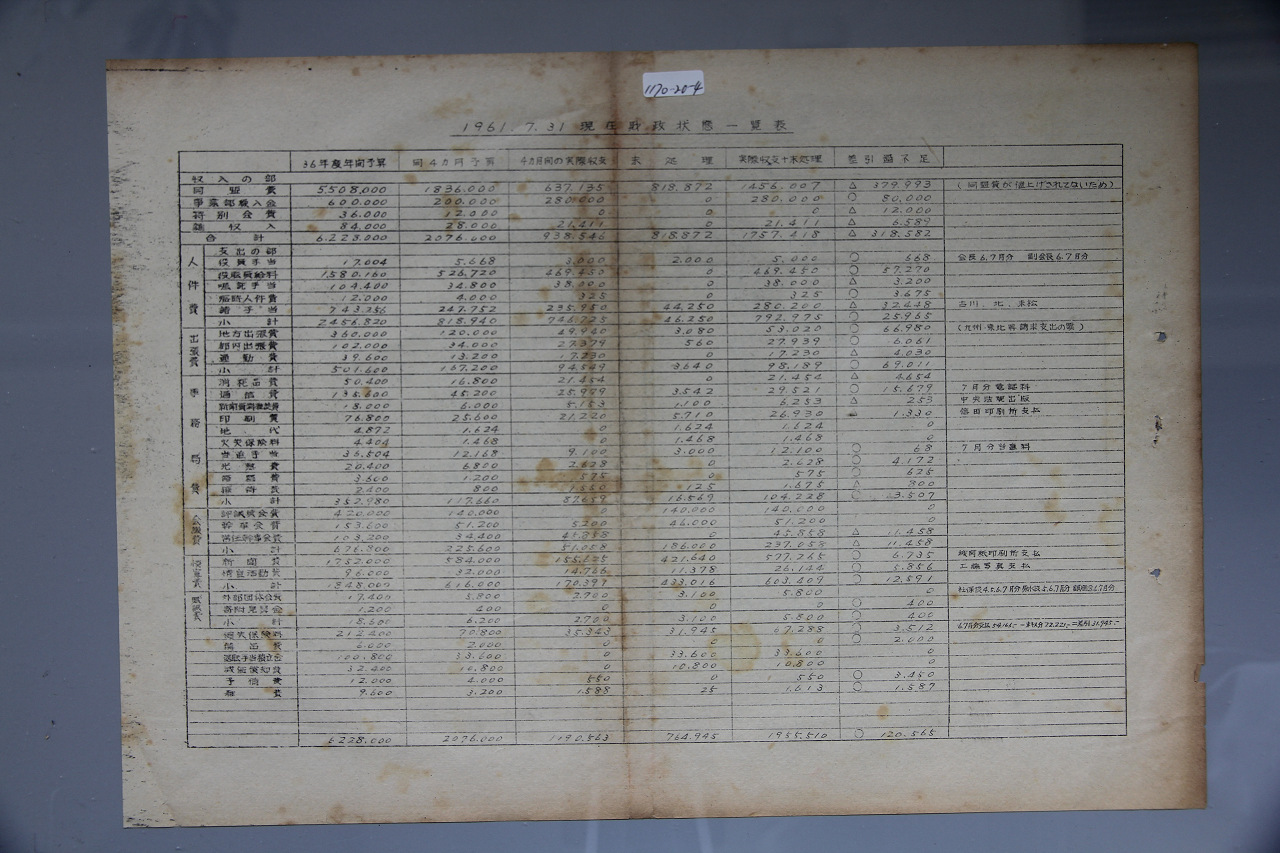 1170-20-4
1961.7.31 現在財政状態一覧表
36年度年間予算 同4カ月予算 4カ月間の実際収支 未処理 実際収支+未処理 差引過不足
収入の部
同盟費 5,508,000 1,836,000 637,135 818,872 1,456,007 △ 379,993 (同盟費が値上げされてないため)
事業部繰入金 600,000 200,000 280,000 0 280,000 ○ 80,000
特別会費 36,000 12,000 0 0 0 △ 12,000
雑収入 84,000 28,000 21,411 0 21,411 △ 6,589
合計 6,228,000 2,076,000 938,546 818,872 1,757,418 △ 318,582
支出の部
人件費
役員手当 17,004 5,668 3,000 2,000 5,000 ○ 668 会長6.7月分 副会長6.7月分
役職員給料 1,580,160 526,720 469,450 0 469,450 ○ 57,270
嘱託手当 104,400 34,800 38,000 0 38,000 △ 3,200
臨時人件費 12,000 4,000 325 0 325 ○ 3,675
諸手当 743,256 247,752 235,950 44,250 280,200 △ 32,448 古川、北、末松
小計 2,456,820 818,940 746,725 46,250 792,975 ○ 25,965
出張費
地方出張費 360,000 120,000 49,940 3,080 53,020 ○ 66,980 (九州・東北等請求支出の額)
都内出張費 102,000 34,000 27,379 560 27,939 ○ 6,061
通勤費 39,600 13,200 17,230 0 17,230 △ 4,030
小計 501,600 167,200 94,549 3,640 98,189 ○ 69,011
事務局費
消耗品費 50,400 16,800 21,454 0 21,454 △ 4,654
通信費 135,600 45,200 25,979 3,542 29,521 ○ 15,679 7月分電話料
18,000 6,000 5,153 1,100 6,253 △ 253 中央法規出版
印刷費 76,800 25,600 21,220 5,710 26,930 △ 1,330 信田印刷所支払
地代 4,872 1,624 0 1,624 1,624 0
火災保険料 4,404 1,468 0 1,468 1,468 0
当直手当 36,504 12,168 9,100 3,000 12,100 ○ 68 7月分当直料
光熱費 20,400 6,800 2,628 0 2,628 ○ 4,172
3,600 1,200 575 0 575 ○ 625
2,400 800 125 1,675 △
小計 352,980 117,660 87,659 16,569 104,228 ○ 13,507
会議費
評議員会費 420,000 140,000 0 140,000 140,000 0
幹事会費 153,600 51,200 5,200 46,000 51,200 0
常任幹事会費 103,200 34,400 45,858 0 45,858 △ 11,458
小計 676,800 225,600 51,058 186,000 237,058 △ 11,458
新聞費 1,752,000 584,000 155,625 421,640 577,265 ○ 6,735 機関紙印刷所支払
情宣活動費 96,000 32,000 14,766 11,378 26,144 ○ 5,856 工藤写真支払
小計 1,848,000 616,000 170,391 433,016 603,409 ○ 12,591
外部団体会費 17,400 5,800 2,700 3,100 5,800 0
1,200 400 0 0 0 ○ 400
小計 18,600 6,200 2,700 3,100 5,800 ○ 400
212,400 70,800 35,343 31,945 67,288 ○ 3,512
6,000 2,000 0 0 0 ○ 2,000
退職手当積立金 100,800 33,600 0 33,600 33,600 0
減価償却費 32,400 10,800 0 10,800 10,800 0
予備費 12,000 4,000 550 0 550 ○ 3,450
雑費 9,600 3,200 1,588 25 1,613 ○ 1,587
6,228,000 2,076,000 1,190,563 764,945 1,955,510 ○ 120,565